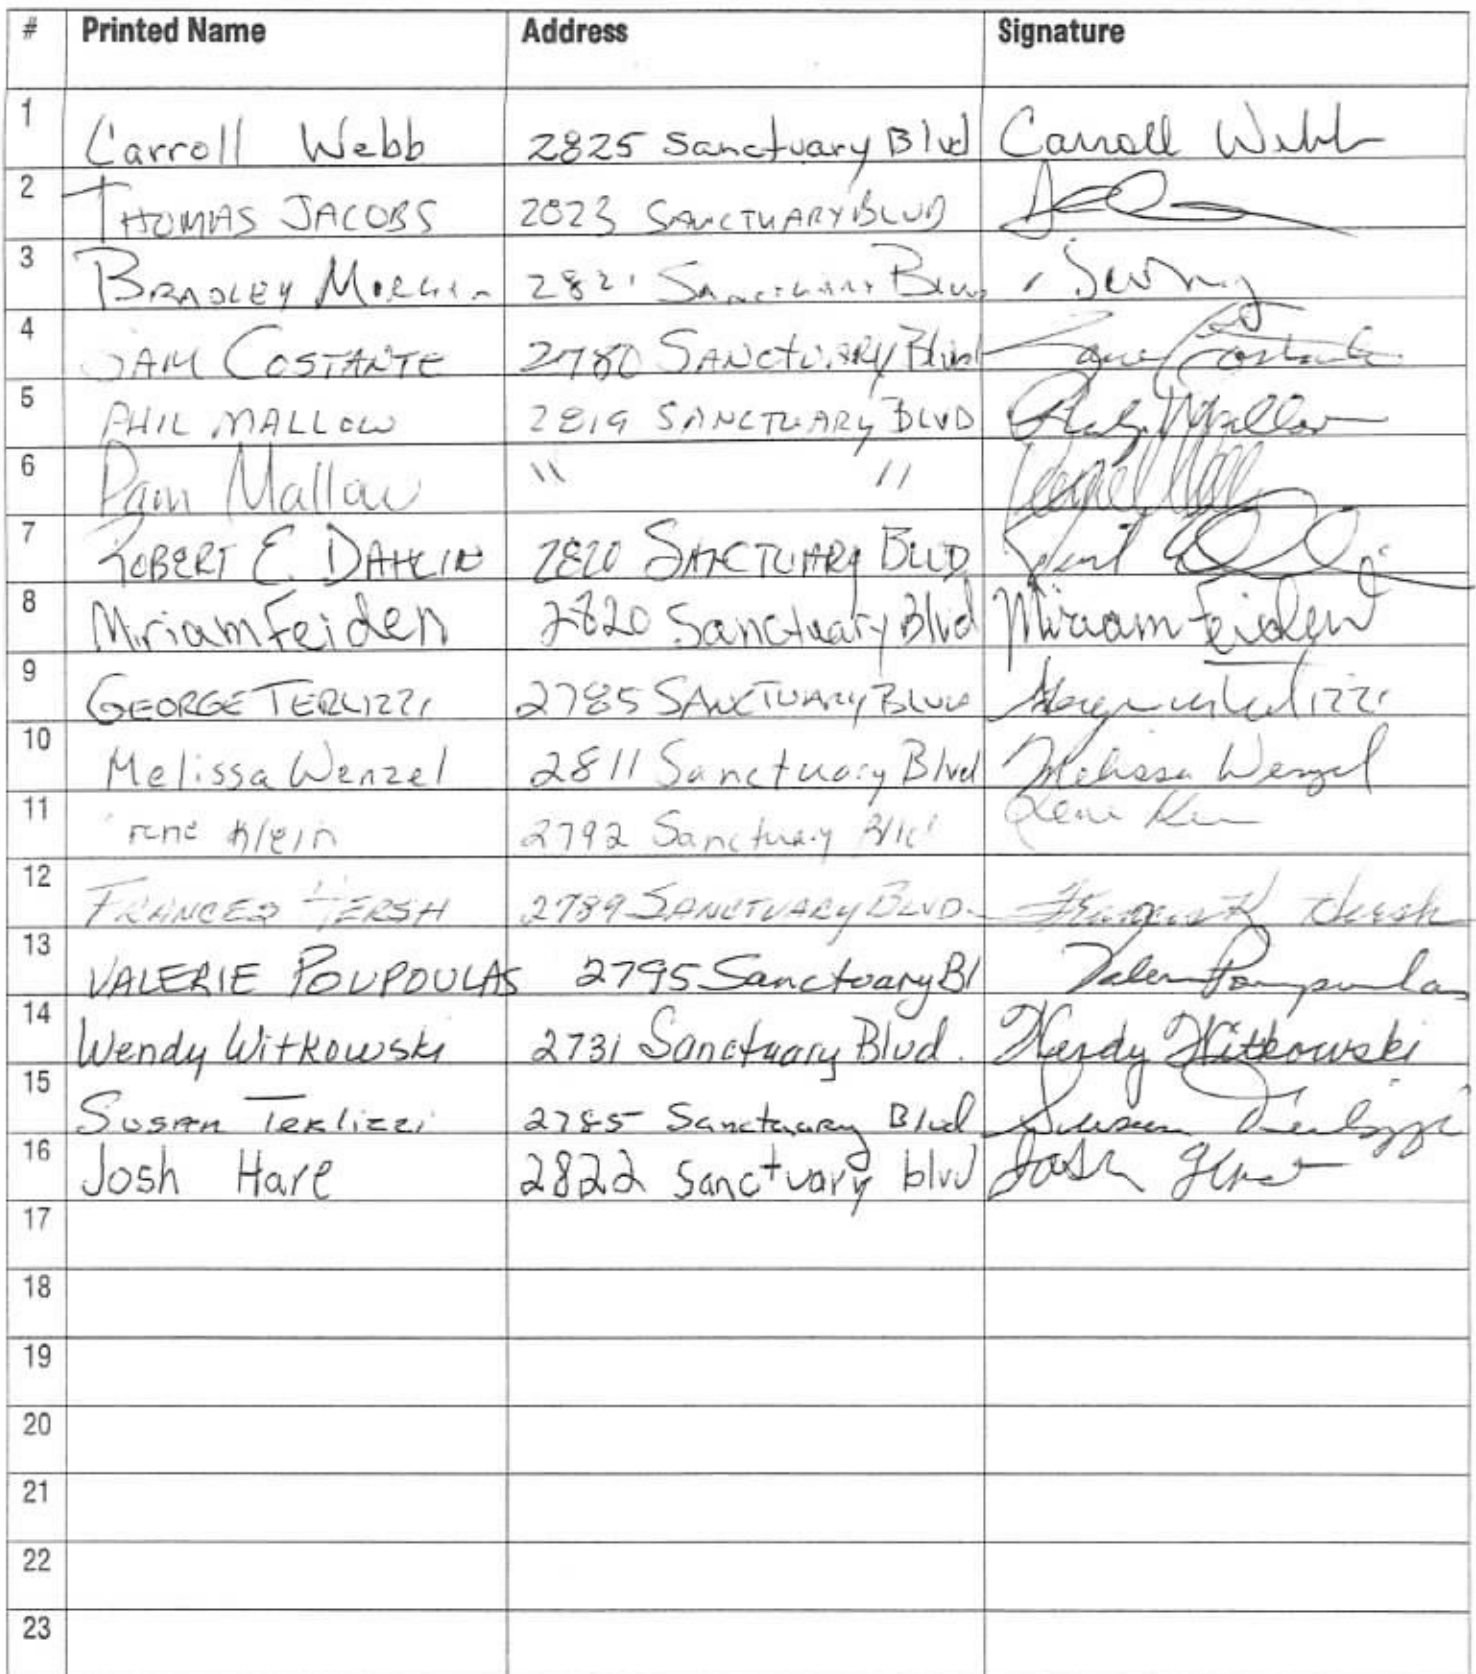 # Printed Name Address Signature
1 Carroll Webb 2825 Sanctuary Blvd Carroll Webb
2 THOMAS JACOBS 2823 SANCTUARY BLVD
3 BRADLEY 2821 Sanctuary Blvd
4 SAM COSTANTE 2780 SANCTUARY Blvd
5 PHIL MALLOW 2819 SANCTUARY BLVD Mallow
6 Pam Mallow " "
7 ROBERT E. DAHLIN 2820 SANCTUARY BLVD
8 Miriam Feiden 2820 Sanctuary Blvd Miriam Feiden
9 GEORGE TERLIZZI 2785 SANCTUARY BLVD
10 Melissa Wenzel 2811 Sanctuary Blvd Melissa Wenzel
11 Klein 2792 Sanctuary Blvd
12 FRANCES HERSH 2789 SANCTUARY BLVD. Frances K Hersh
13 VALERIE POUPOULAS 2795 Sanctuary Bl
14 Wendy Witkowski 2731 Sanctuary Blvd. Wendy Witkowski
15 Susan Terlizzi 2785 Sanctuary Blvd Susan Terlizzi
16 Josh Hare 2822 Sanctuary blvd Josh
17
18
19
20
21
22
23